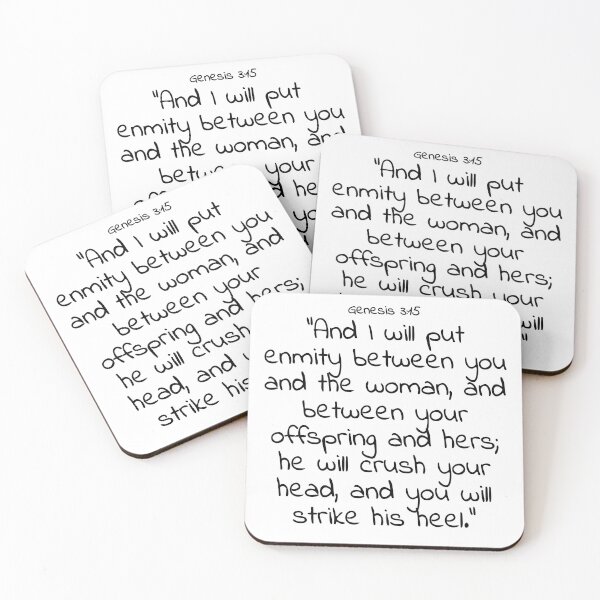 Genesis 3:15
"And I will put
enmity between you
and the woman, and
your
Genesis 3:15
"And I will put
enmity between you
and the woman, and
between your
offspring and hers;
he will crush your
will
Genesis 3:15
"And I will put
enmity between you
and the woman, and
between your
offspring and hers;
he will crush
head, and
strike his
Genesis 3:15
"And I will put
enmity between you
and the woman, and
between your
offspring and hers;
he will crush your
head, and you will
strike his heel."